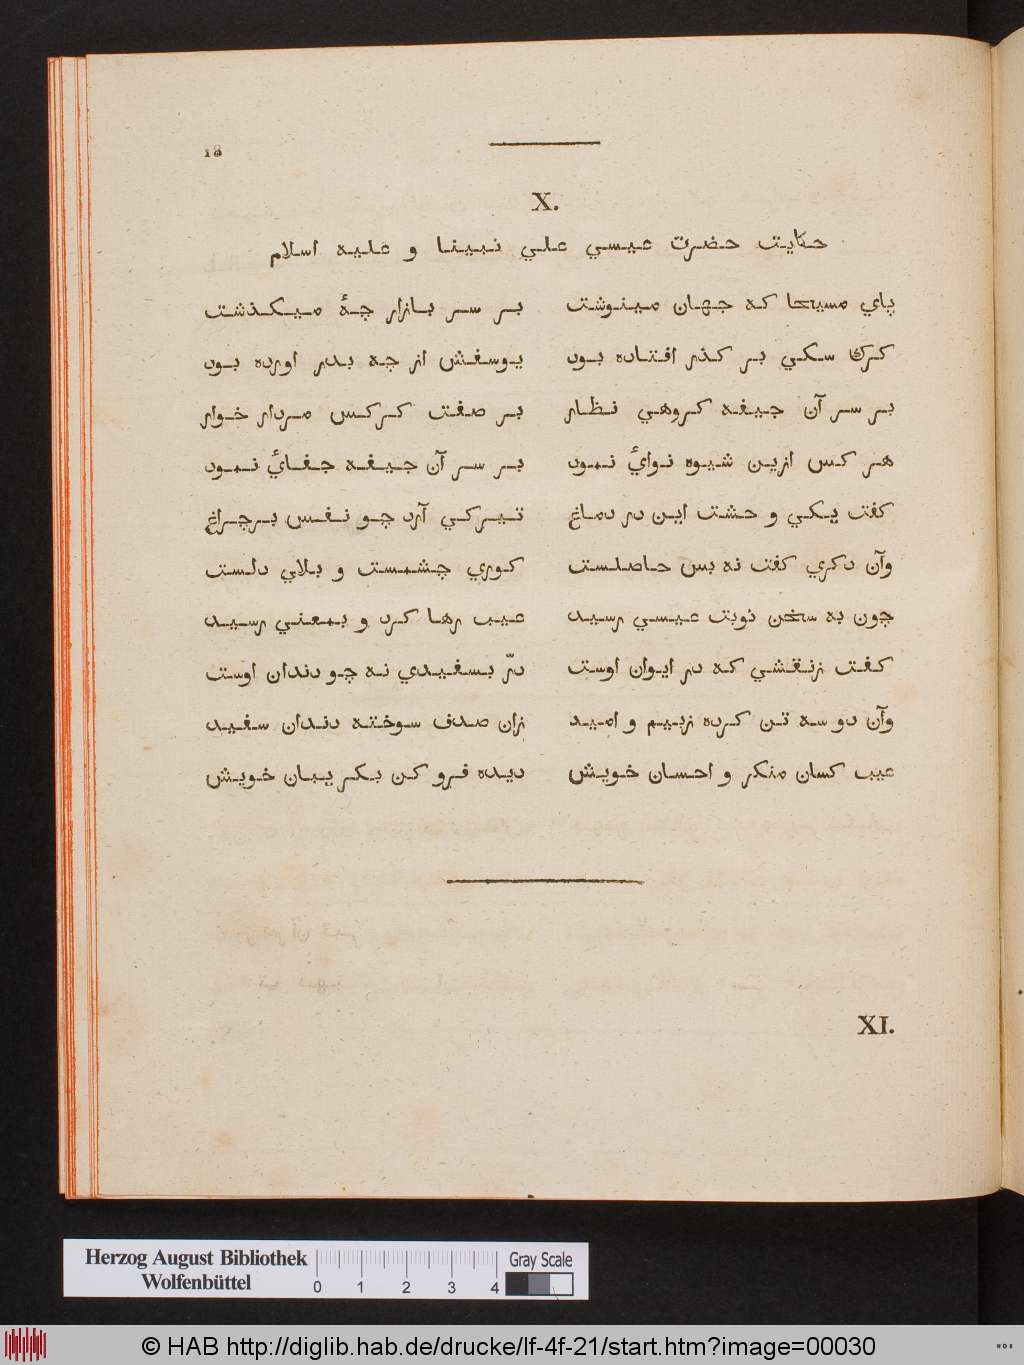 18
X.
حكايت حضرت عيسي علي نبينا و عليه اسلام
پاي مسيحا كه جهان مينوشت    بر سر بازار چهٔ ميكذشت
كرك سكي بر كذر افتاده بود    يوسفش از چه بدر اورده بود
بر سر آن جيفه كروهي نظار    بر صفت كركس مردار خوار
هر كس ازين شيوه نوائ نمود    بر سر آن جيفه جفائ نمود
كفت يكي و حشت اين در دماغ    تيركي آرد چو نفس بر چراغ
وآن دكري كفت نه بس حاصلست    كوري چشمست و بلاي دلست
چون به سخن نوبت عيسي رسيد    عيب رها كرد و بمعني رسيد
كفت زنقشي كه در ايوان اوست    درّ بسفيدي نه چو دندان اوست
وآن دو سه تن كرده زبيم و اميد    زان صدف سوخته دندان سفيد
عيب كسان منكر و احسان خويش    ديده فرو كن بكر يبان خويش
XI.
Herzog August Bibliothek
Wolfenbüttel
0 1 2 3 4
Gray Scale
© HAB http://diglib.hab.de/drucke/lf-4f-21/start.htm?image=00030